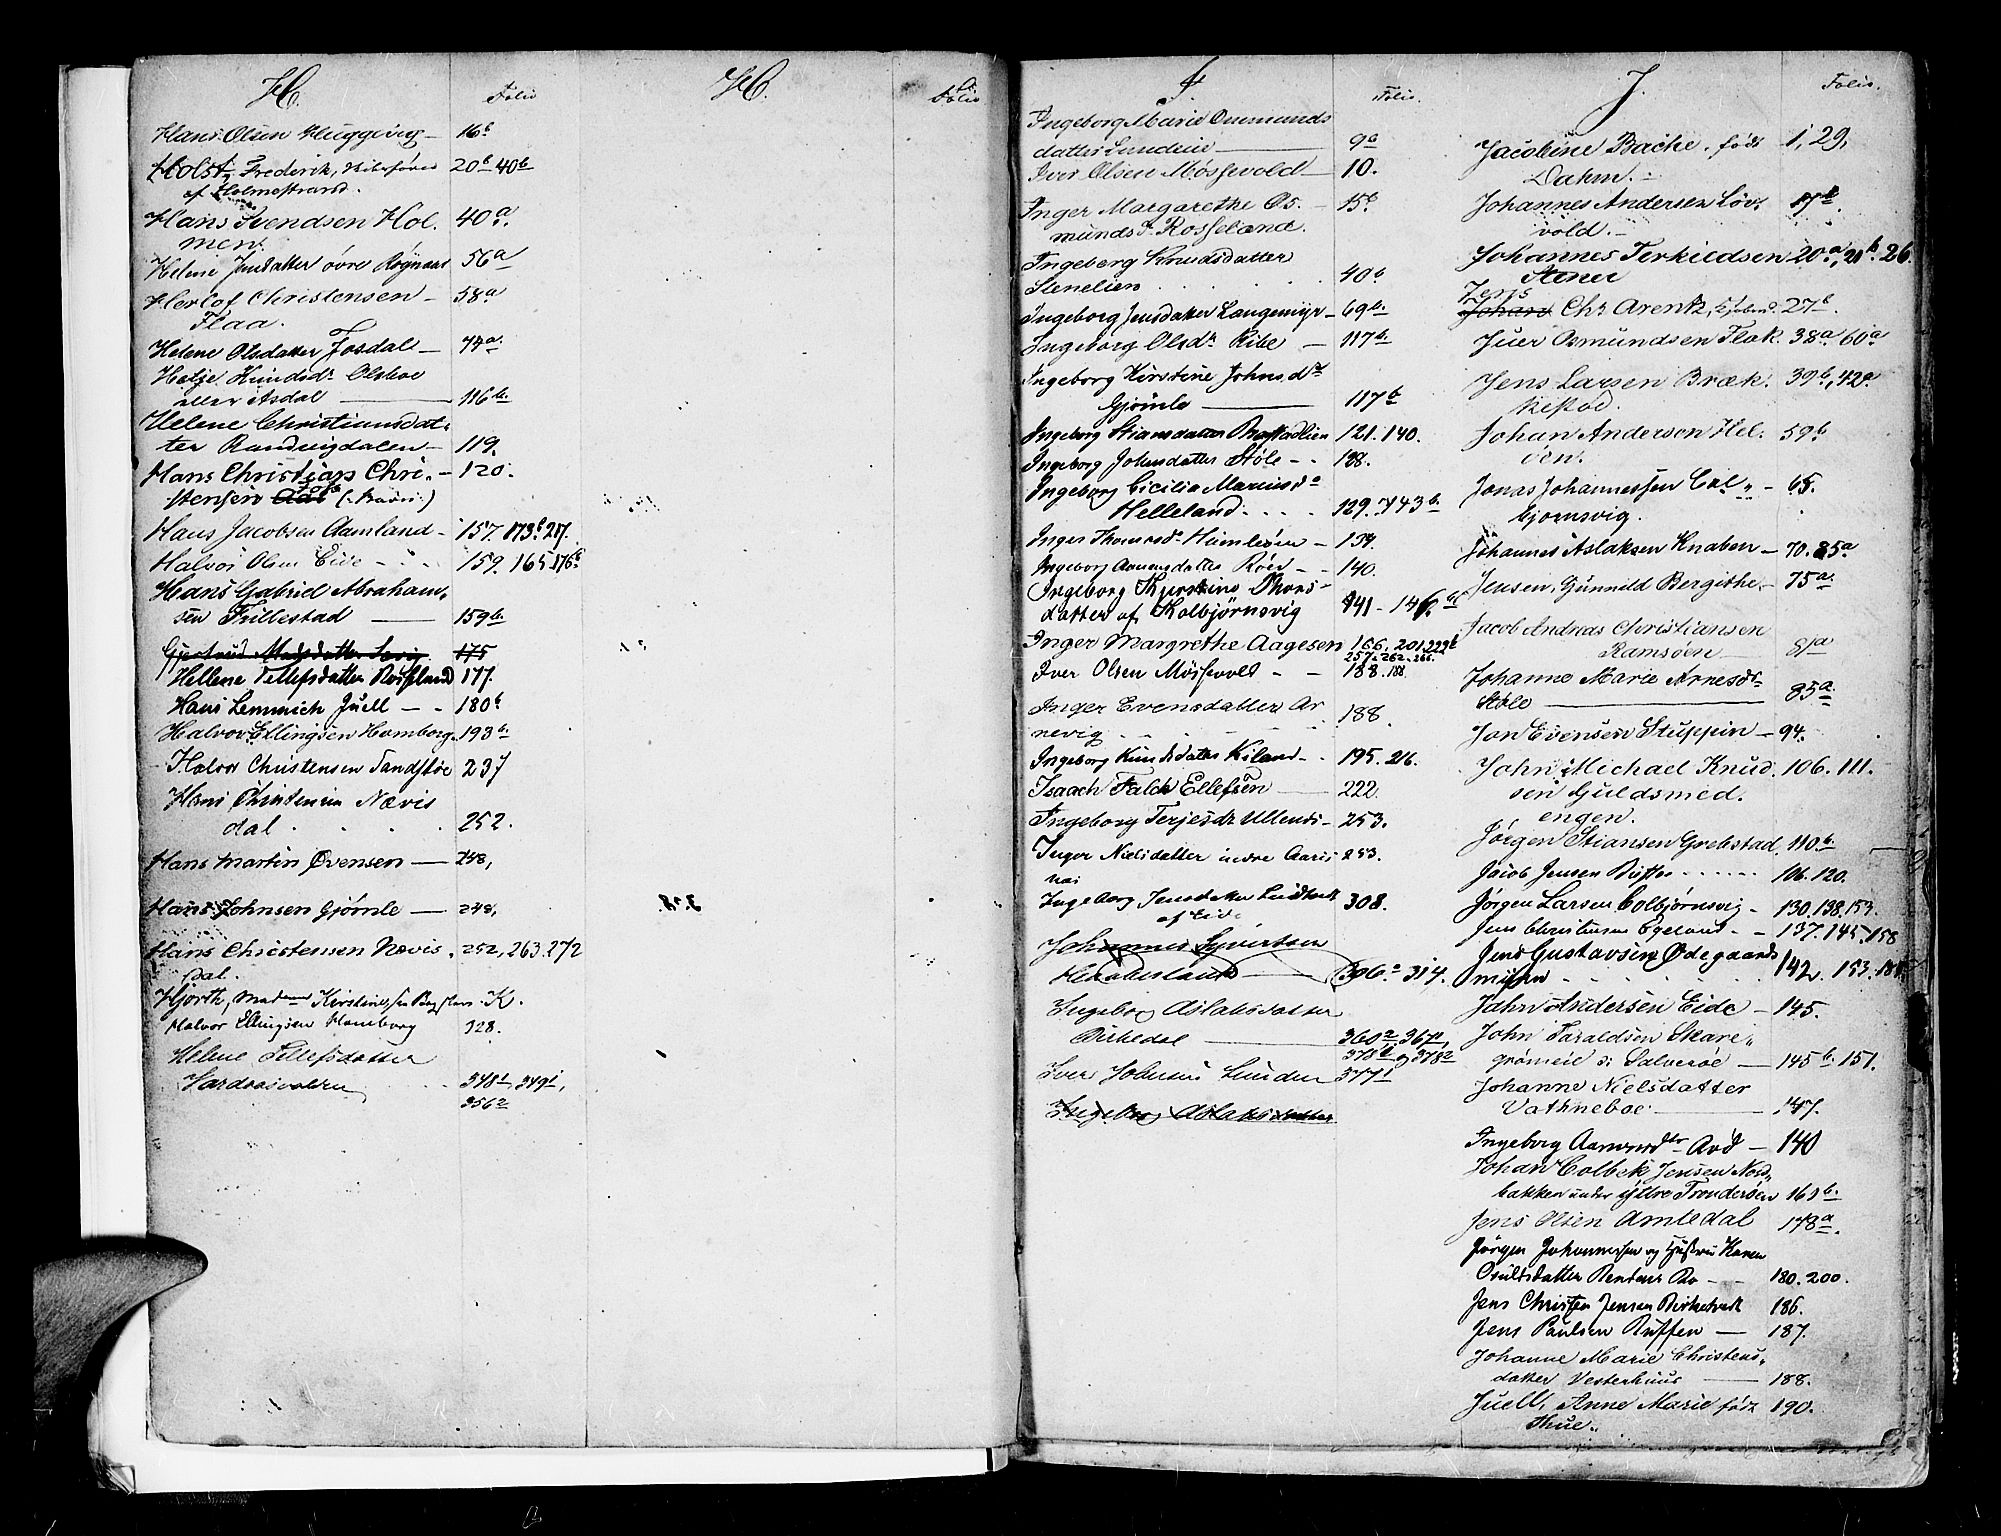 H. Folio
Hans Olsen 16b
Holst, Frederik, 20b 40b
af Holmestrand.
Hans Svendsen Hol. 40a.
men.
Helene Jensdatter övre 56a
Herlof Christensen 58a
Flaa.
Helene Olsdatter Josdal 77a.
Helje Knudsdr Olsboe
eller Asdal 116b.
Helene Christiansdat-
ter Randvigdalen 119.
Hans Christian Chri- 120.
stensen
Hans Jacobsen Aamland 157. 173b 217.
Halvor Olsen Eide 159. 165. 176b
Hans Gabriel Abraham-
sen Fillestad 159b.
Gjertrud Madsdatter 175
Hellene Tellefsdatter Rosseland 177.
Hans Lemmich Juell 180b
Halvor Ellingsen Homborg. 193b.
Halvor Christensen Sandstøe 237
Hans Christensen Nævis
dal 252.
Hans Martin Øvensen 248,
Hans Johnsen Gjömle 248,
Hans Christensen Nævis. 252, 263. 272
dal.
Hjorth, Madame Kirstine, K.
Halvor Ellingsen Homborg 328.
Helene Tellefsdatter
348, 349,
356
H. Folio
J. Folio.
Ingeborg Marie Onmunds
datter 9a
Iver Olsen Mösevold 10.
Inger Margarethe Os- 15b
munds dr Rosseland.
Ingeberg Knudsdatter
Stenelien 40b
Ingeborg Jensdatter Langemyr 69b.
Ingeborg Olsdr Ribe 117b.
Ingeborg Kirstine Johnsdr
Gjömle 117b
Ingeborg Stiansdatter 121. 140.
Ingeborg Johnsdatter Støle 128.
Ingeborg Cicilia
Helleland 129. 143b.
Inger 134.
Ingeborg Aamundsdatter Röed 140.
Ingeborg Kjerstine Thors-
datter af Kolbjørnsvig 141 - 146b
Inger Margrethe Aagesen 166. 201. 222b
257. 262. 266.
Iver Olsen Mösevold 188. 188
Inger Evensdatter Ar 188.
nevig
Ingeborg Knudsdatter Kiland 195. 216.
Isaach Falck Ellefsen 222.
Ingeborg Terjesdr Ullends 253.
Inger Nielsdatter indre Aaris 253.
næs
Ingeborg Jensdatter 308.
af Eide
Johannes Syvertsen
Haaberland 306a 314.
Ingeborg Aslaksdatter
Birkedal 360 367,
378 378
Iver Johnsen Lunden 377
Ingeborg Aslaksdatter
J. Folio.
Jacobine Bache, født 1, 29,
Dahm.
Johannes Andersen Löv- 17b.
vold.
Johannes Terkildsen 20a, 21b. 26.
Stener
Jens
Johan Chr Arentz, 27b.
Juer Osmundsen Flak. 38a 60a
Jens Larsen Bræk. 39b, 42a
kestad.
Johan Andersen Hel. 59b
öen.
Jonas Johannessen Col- 65.
bjørnsvig.
Johannes Aslaksen Knaben 70. 85a
Jensen, Gunnild Bergithe 75a.
Jacob Andreas Christiansen
Ramsöen 81a
Johanne Marie Arnesdr
Støle 85a.
Jon Evensen Stuppin 94.
John Michael Knud. 106. 111.
sen Guldsmed.
engen.
Jörgen Stiansen Grebstad. 110b.
Jacob Jensen 106. 120.
Jørgen Larsen Colbjørnsvig 130. 138. 153.
Jens Christensen Egeland 137. 145. 158
Jens Gustavsen Ødegaards
142. 153.
John Andersen Eide 145.
John Taraldsen Skare-
145b. 151.
Johanne Nielsdatter
Vathneboe 147.
Ingeborg 140
Johan Colbek Jensen Nord
bakken under ÿttre Tromdersöen 161b.
Jens Olsen Omledal 178a.
Jörgen Johannessen og Hustru Karen
Osuldsdatter 180. 200.
Jens Christen Jensen 186.
Jens Paulsen 187.
Johanne Marie Christens-
datter Vesterhuus 188.
Juell, Anne Marie født 190.
Thue.